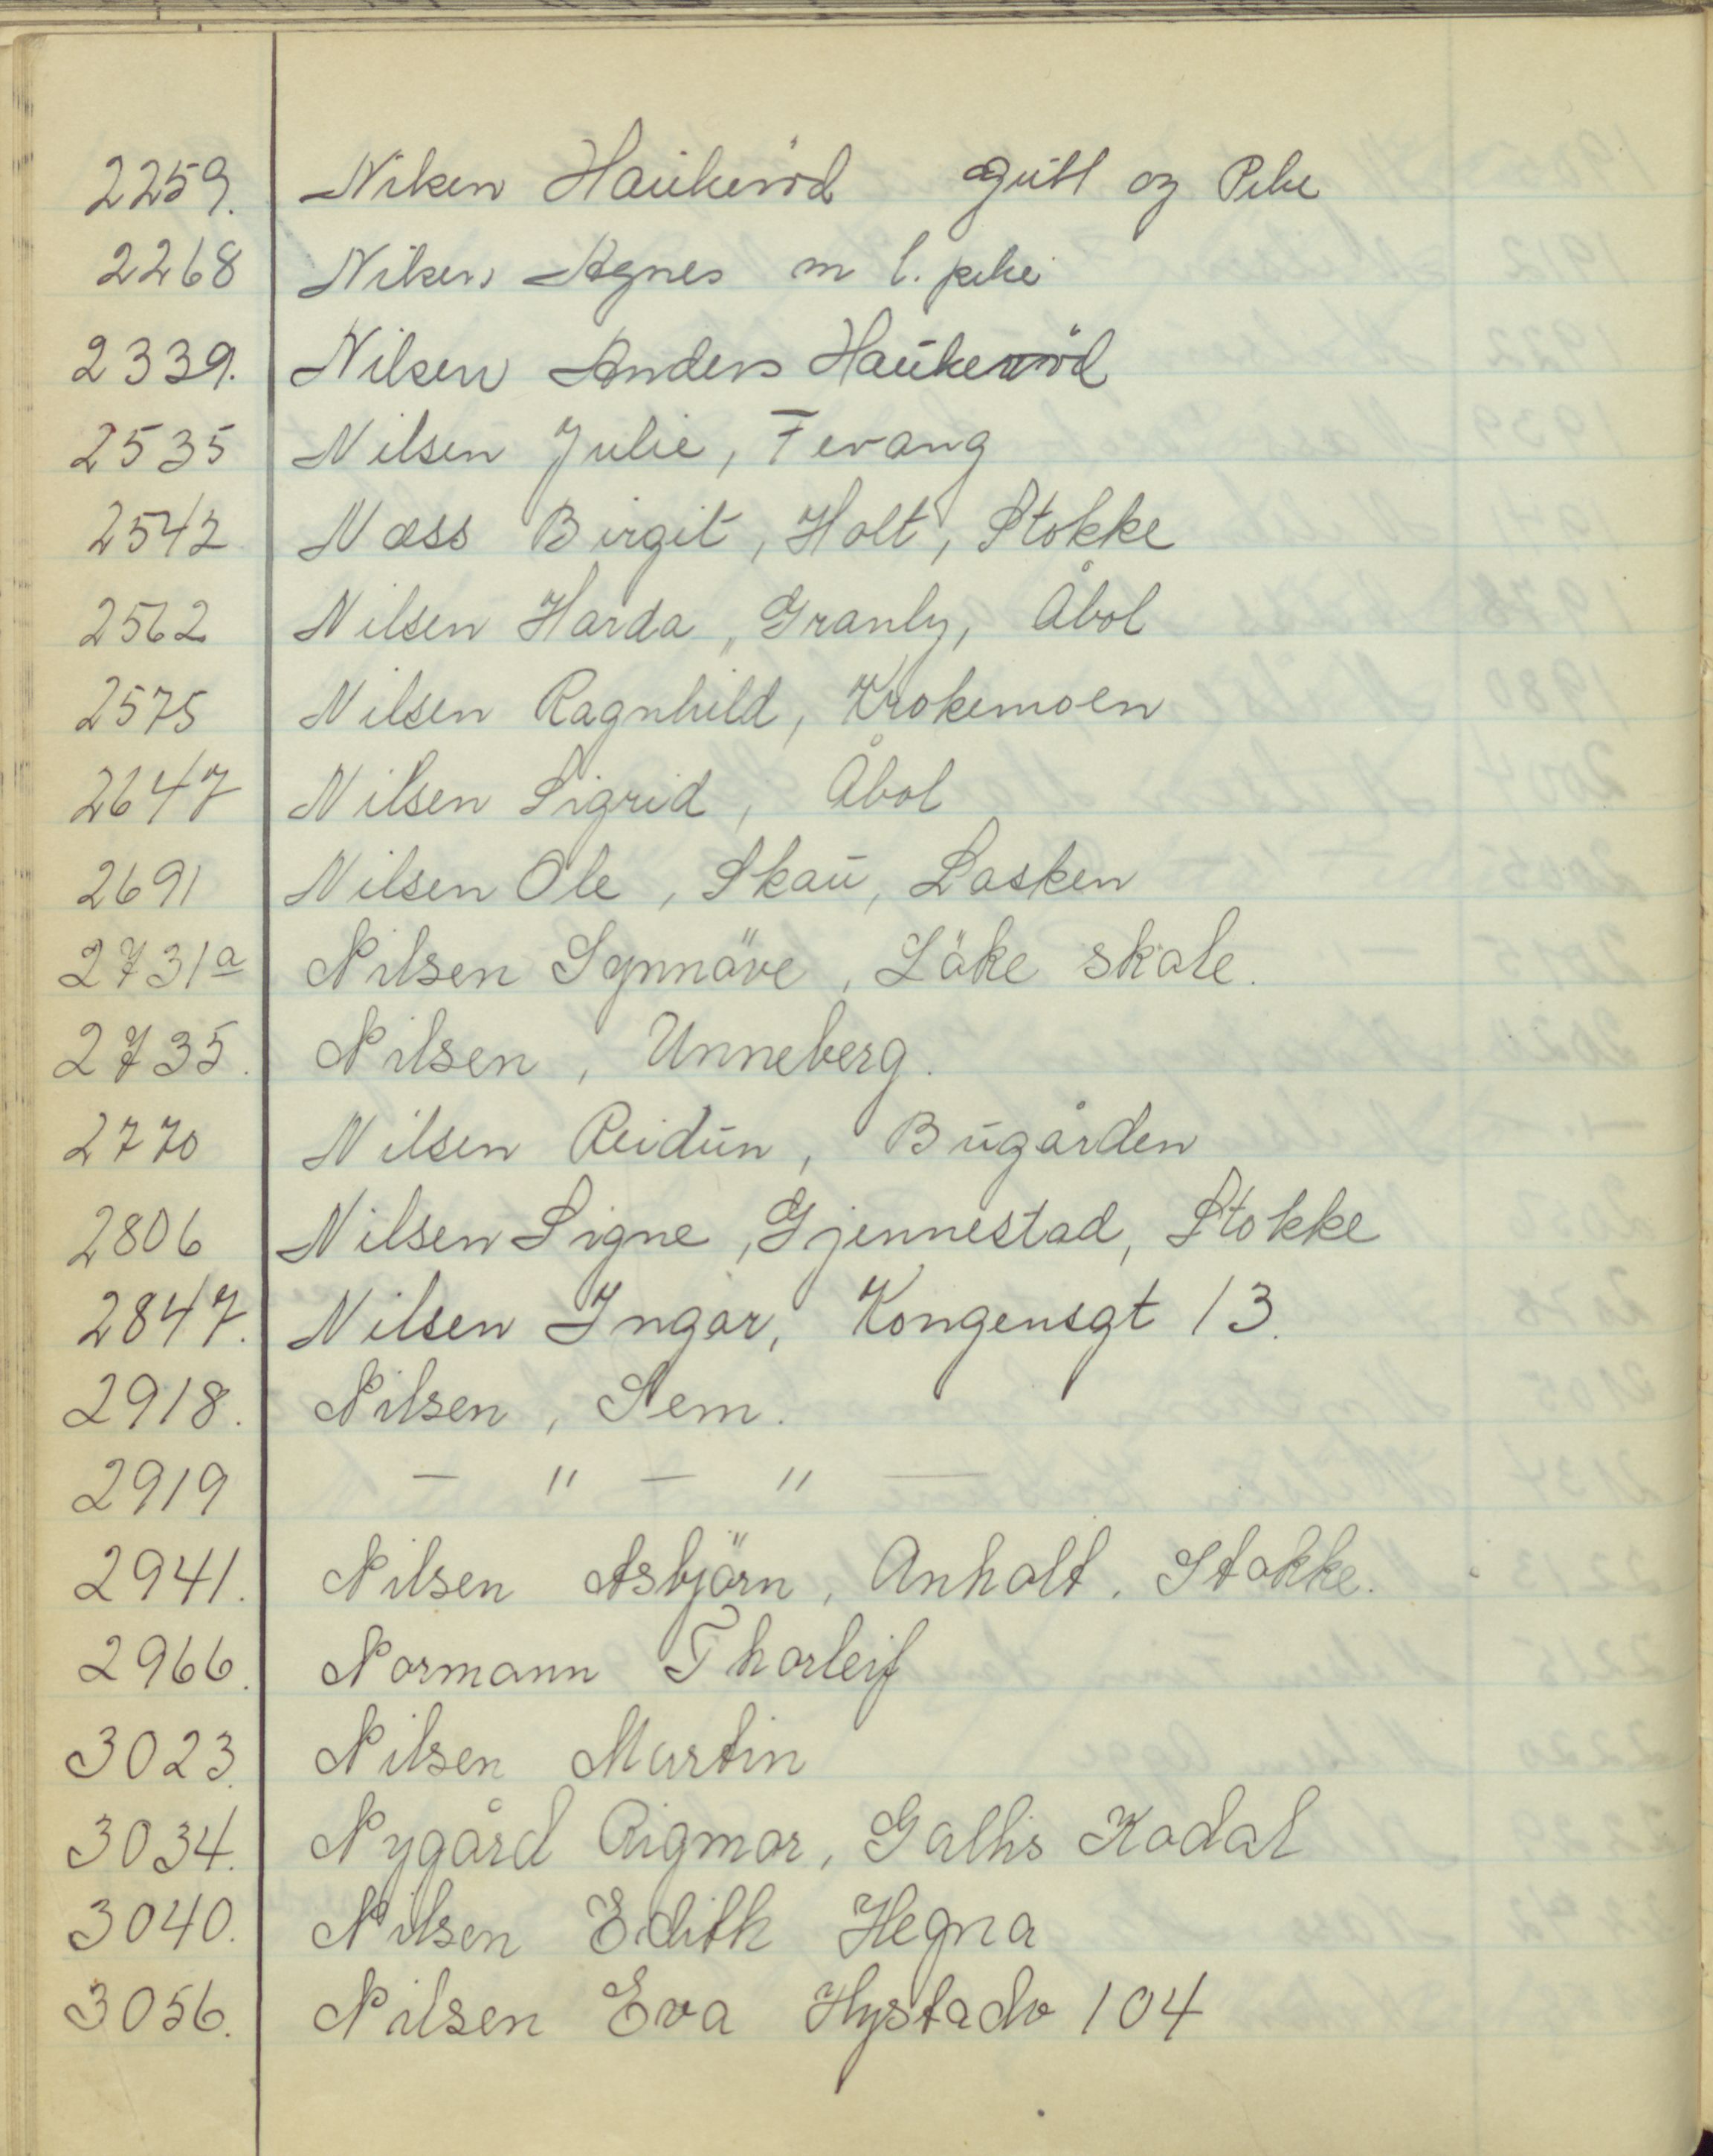 2259. Nilsen Haukeröd gutt og Pike
2268 Nilsen Agnes m l. pike
2339. Nilsen Anders Haukeröd
2535 Nilsen Julie, Fevang
2542 Næss Birgit, Holt, Stokke
2562 Nilsen Harda, Granly, Åbol
2575 Nilsen Ragnhild, Krokemoen
2647 Nilsen Sigrid, Åbol
2691 Nilsen Ole, Skau, Lasken
2731a Nilsen Synnöve, Löke skole.
2735. Nilsen, Unneberg.
2770 Nilsen Reidun, Bugården
2806 Nilsen Signe, Gjennestad, Stokke
2847. Nilsen Ingar, Kongensgt 13.
2918. Nilsen, Sem.
2919 — " — " —
2941. Nilsen Asbjörn, Anholt. Stokke.
2966. Normann Thorleif
3023. Nilsen Martin
3034. Nygård Rigmor, Gallis Kodal
3040. Nilsen Edith Hegna
3056. Nilsen Eva Hystadv 104